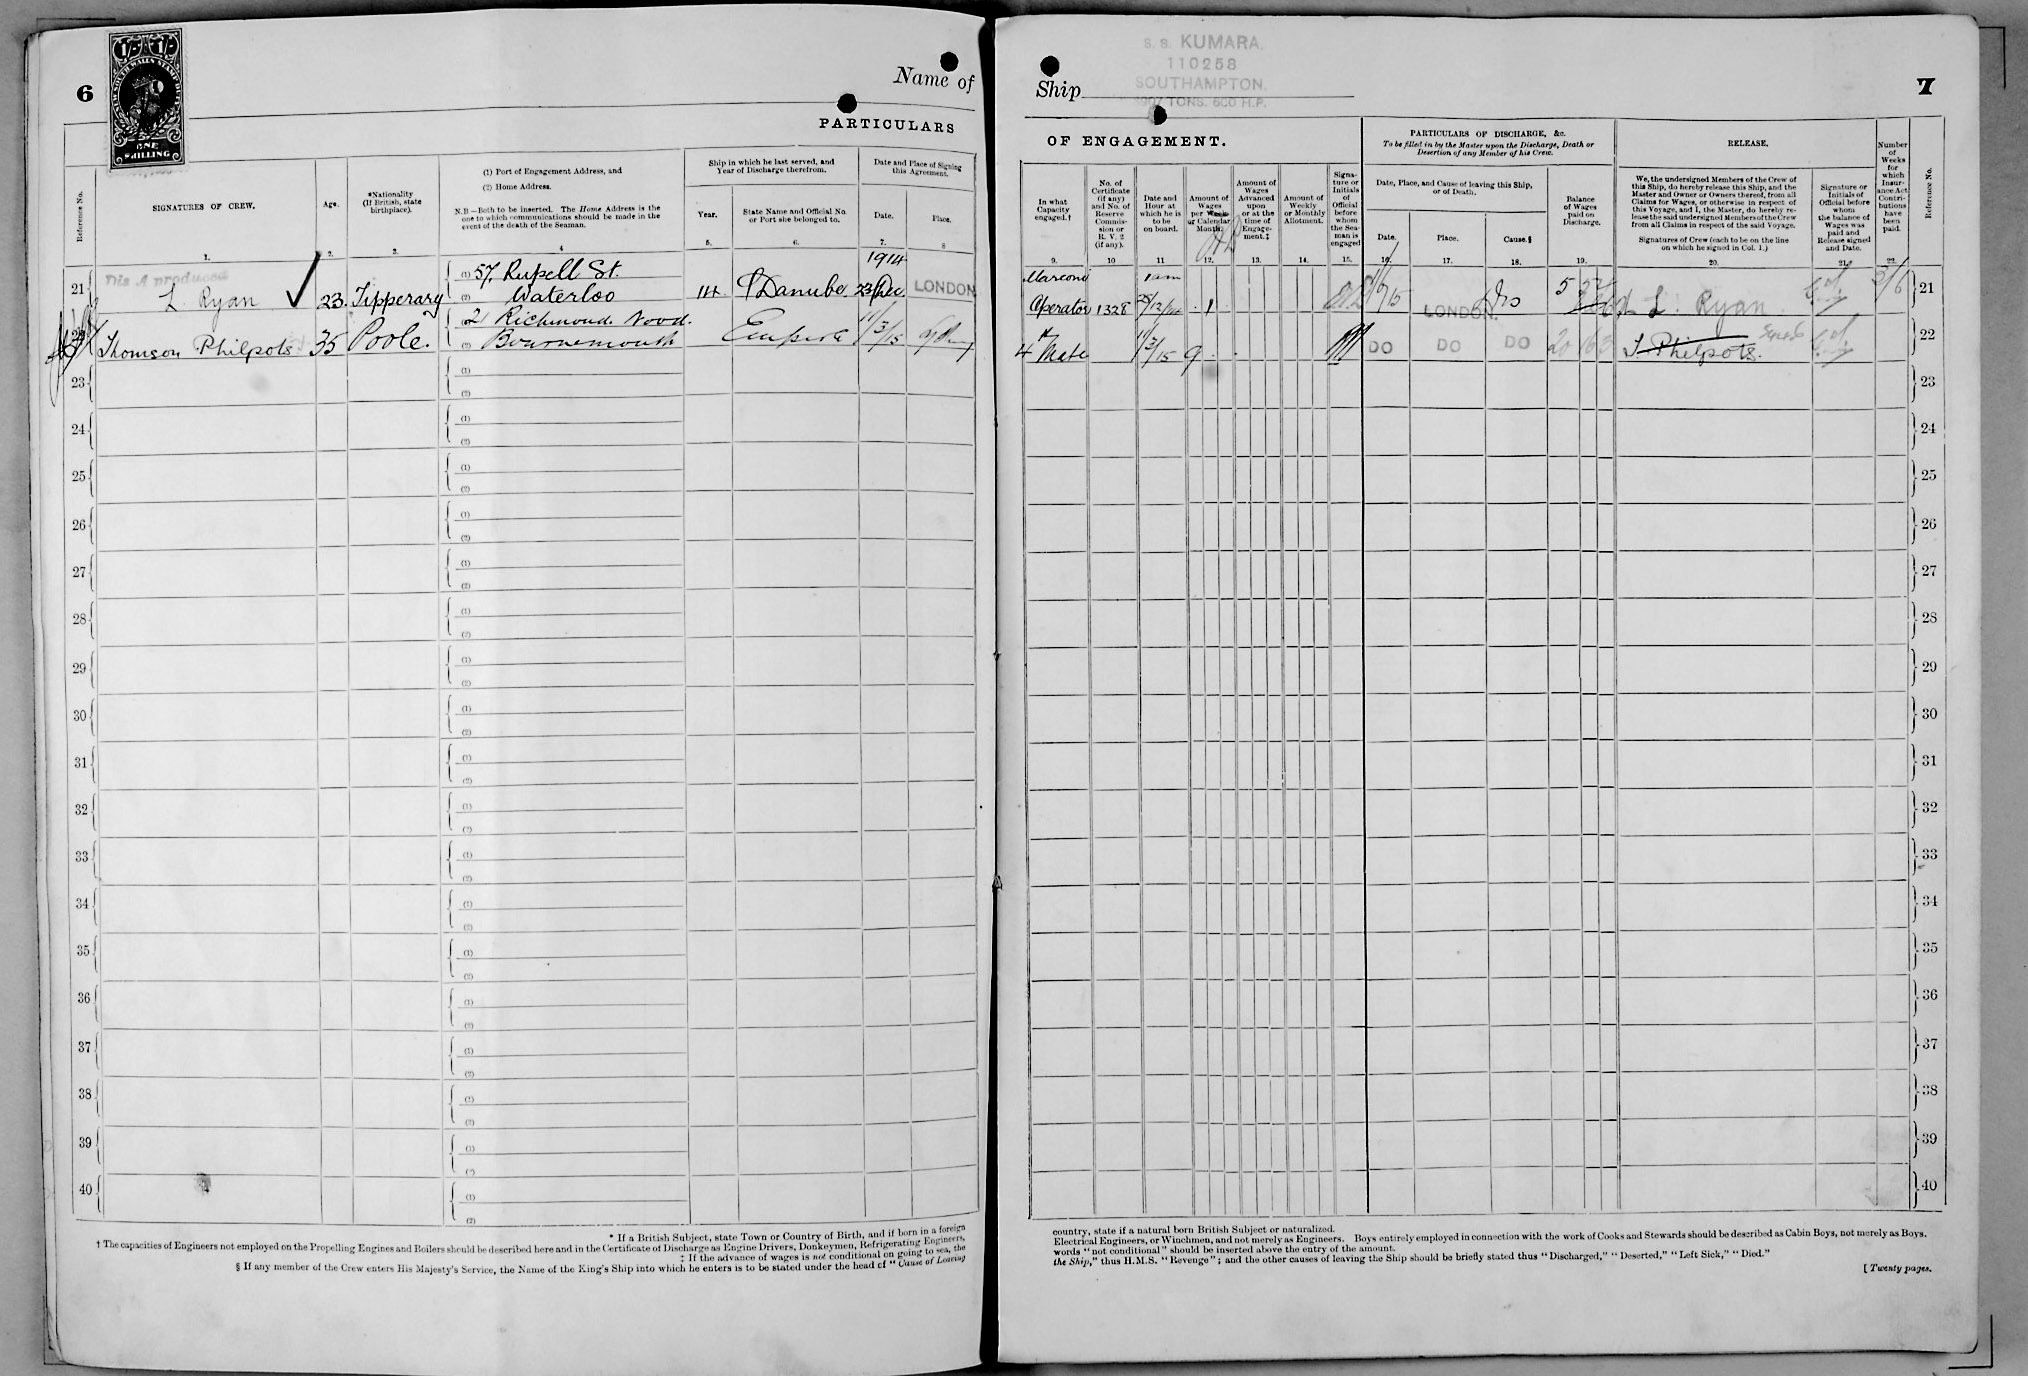 6
1/- 1/-
NEW SOUTH WALES STAMP DUTY
ONE
SHILLING
Name of
PARTICULARS
Reference No.
SIGNATURES OF CREW.
Age.
*Nationality
(If British, state
birthplace).
(1) Port of Engagement Address, and
(2) Home Address.
N.B—Both to be inserted. The Home Address is the
one to which communications should be made in the
event of the death of the Seaman.
Ship in which he last served, and
Year of Discharge therefrom.
Year.
State Name and Official No.
or Port she belonged to.
Date and Place of Signing
this Agreement.
Date.
Place.
1. 2. 3. 4 5. 6. 7. 8
1914
21 Dis A produced
L. Ryan ✓ 23. Tipperary
(1) 57, Russell St.
(2) Waterloo 14 Danube 23/Dec. LONDON
Thomson Philpots 35 Poole.
2 Richmond Wood.
Bournemouth 11/3/15
23 (1)
(2)
24 (1)
(2)
25 (1)
(2)
26 (1)
(2)
27 (1)
(2)
28 (1)
(2)
29 (1)
(2)
30 (1)
(2)
31 (1)
(2)
32 (1)
(2)
33 (1)
(2)
34 (1)
(2)
35 (1)
(2)
36 (1)
(2)
37 (1)
(2)
38 (1)
(2)
39 (1)
(2)
40 (1)
(2)
* If a British Subject, state Town or Country of Birth, and if born in a foreign
† The capacities of Engineers not employed on the Propelling Engines and Boilers should be described here and in the Certificate of Discharge as Engine Drivers, Donkeymen, Refrigerating Engineers,
‡ If the advance of wages is not conditional on going to sea, the
§ If any member of the Crew enters His Majesty's Service, the Name of the King's Ship into which he enters is to be stated under the head of "Cause of Leaving
S.S. KUMARA.
110258
SOUTHAMPTON.
TONS. 600 H.P.
Ship
7
OF ENGAGEMENT.
PARTICULARS OF DISCHARGE, &c.
To be filled in by the Master upon the Discharge, Death or
Desertion of any Member of his Crew.
RELEASE.
In what
Capacity
engaged.†
No. of
Certificate
(if any)
and No. of
Reserve
Commis-
sion or
R. V. 2
(if any).
Date and
Hour at
which he is
to be
on board.
Amount of
Wages
per Week
or Calendar
Month.
Amount of
Wages
Advanced
upon
or at the
time of
Engage-
ment.‡
Amount of
Weekly
or Monthly
Allotment.
Signa-
ture or
Initials
of
Official
before
whom
the Sea-
man is
engaged
Date, Place, and Cause of leaving this Ship,
or of Death.
Date.
Place.
Cause.§
Balance
of Wages
paid on
Discharge.
We, the undersigned Members of the Crew of
this Ship, do hereby release this Ship, and the
Master and Owner or Owners thereof, from all
Claims for Wages, or otherwise in respect of
this Voyage, and I, the Master, do hereby re-
lease the said undersigned Members of the Crew
from all Claims in respect of the said Voyage.
Signatures of Crew (each to be on the line
on which he signed in Col. 1.)
Signature or
Initials of
Official before
whom
the balance of
Wages was
paid and
Release signed
and Date.
Number
of
Weeks
for
which
Insur-
ance Act
Contri-
butions
have
been
paid.
Reference No.
9. 10 11 12. 13. 14. 15. 16. 17. 18. 19. 20. 21. 22.
Marconi 1 am
Operator 1328 1 LONDON. L. Ryan 21
4th Mate 11/3/15 9 DO DO DO T Philpots. 22
23
24
25
26
27
28
29
30
31
32
33
34
35
36
37
38
39
40
country, state if a natural born British Subject or naturalized.
Electrical Engineers, or Winchmen, and not merely as Engineers. Boys entirely employed in connection with the work of Cooks and Stewards should be described as Cabin Boys, not merely as Boys.
words "not conditional" should be inserted above the entry of the amount.
the Ship," thus H.M.S. "Revenge"; and the other causes of leaving the Ship should be briefly stated thus "Discharged," "Deserted," "Left Sick," "Died."
[Twenty pages.